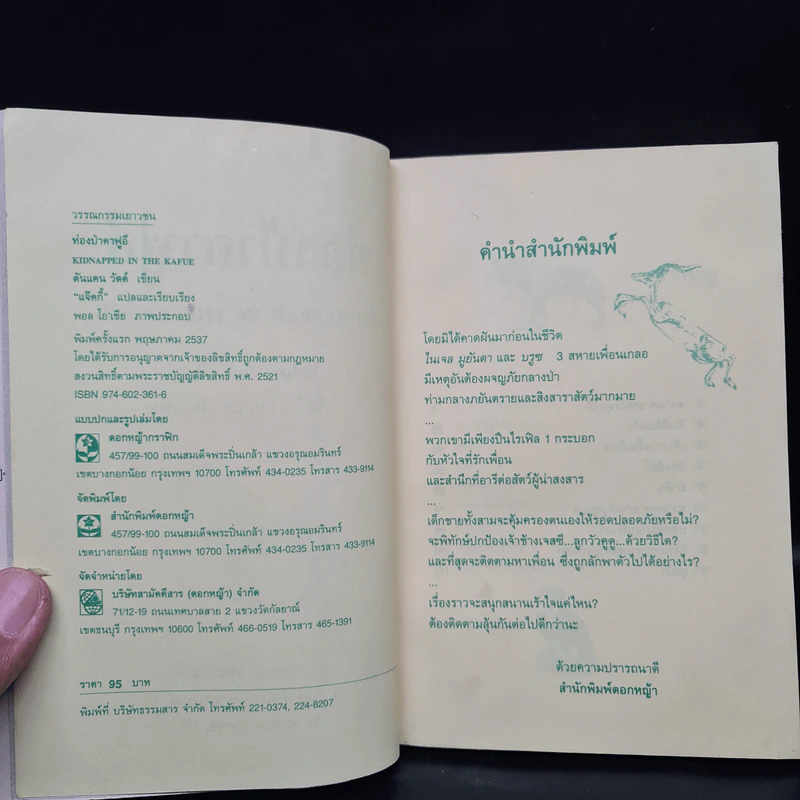 วรรณกรรมเยาวชน
ท่องป่าคาฟูอี
KIDNAPPED IN THE KAFUE
ดันแคน วัตต์ เขียน
"แจ๊คกี้" แปลและเรียบเรียง
พอล โอ'เชีย ภาพประกอบ
พิมพ์ครั้งแรก พฤษภาคม 2537
โดยได้รับการอนุญาตจากเจ้าของลิขสิทธิ์ถูกต้องตามกฎหมาย
สงวนลิขสิทธิ์ตามพระราชบัญญัติลิขสิทธิ์ พ.ศ. 2521
ISBN 974-602-361-6
แบบปกและรูปเล่มโดย
ดอกหญ้ากราฟิก
457/99-100 ถนนสมเด็จพระปิ่นเกล้า แขวงอรุณอมรินทร์
เขตบางกอกน้อย กรุงเทพฯ 10700 โทรศัพท์ 434-0235 โทรสาร 433-9114
จัดพิมพ์โดย
สำนักพิมพ์ดอกหญ้า
457/99-100 ถนนสมเด็จพระปิ่นเกล้า แขวงอรุณอมรินทร์
เขตบางกอกน้อย กรุงเทพฯ 10700 โทรศัพท์ 434-0235 โทรสาร 433-9114
จัดจำหน่ายโดย
บริษัทสามัคคีสาร (ดอกหญ้า) จำกัด
71/12-19 ถนนเทศบาลสาย 2 แขวงวัดกัลยาณ์
เขตธนบุรี กรุงเทพฯ 10600 โทรศัพท์ 466-0519 โทรสาร 465-1391
ราคา 95 บาท
พิมพ์ที่ บริษัทธรรมสาร จำกัด โทรศัพท์ 221-0374, 224-8207
คำนำสำนักพิมพ์
โดยมิได้คาดฝันมาก่อนในชีวิต
ไนเจล มูยันดา และ บรูซ 3 สหายเพื่อนเกลอ
มีเหตุอันต้องผจญภัยกลางป่า
ท่ามกลางภยันตรายและสิงสาราสัตว์มากมาย
...
พวกเขามีเพียงปืนไรเฟิล 1 กระบอก
กับหัวใจที่รักเพื่อน
และสำนึกที่อารีต่อสัตว์ผู้น่าสงสาร
...
เด็กชายทั้งสามจะคุ้มครองตนเองให้รอดปลอดภัยหรือไม่?
จะพิทักษ์ปกป้องเจ้าช้างเจสซี...ลูกวัวคูดู...ด้วยวิธีใด?
และที่สุดจะติดตามหาเพื่อน ซึ่งถูกลักพาตัวไปได้อย่างไร?
...
เรื่องราวจะสนุกสนานเร้าใจแค่ไหน?
ต้องติดตามลุ้นกันต่อไปดีกว่านะ
ด้วยความปรารถนาดี
สำนักพิมพ์ดอกหญ้า